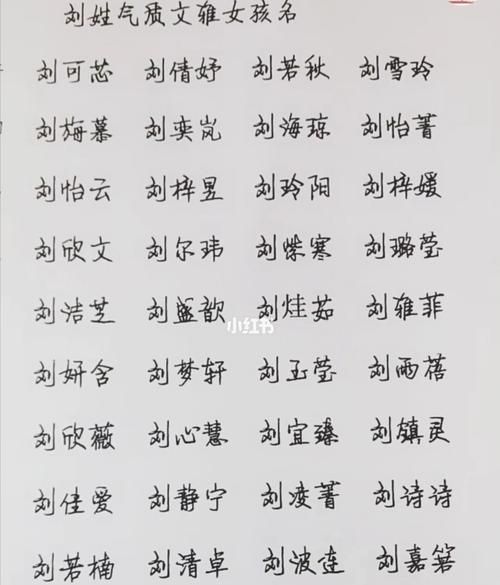 刘姓气质文雅女孩名
刘可芯 刘倩妤 刘若秋 刘雪玲
刘梅慕 刘奕岚 刘海琼 刘怡菁
刘怡云 刘梓昱 刘玲阳 刘梓媛
刘欣文 刘尔玮 刘紫寒 刘璐莹
刘洁芝 刘盛歆 刘烓茹 刘雅菲
小红书
刘妍含 刘梦轩 刘玉莹 刘雨蓓
刘欣薇 刘心慧 刘宜臻 刘镇灵
刘佳爱 刘静宁 刘凌菁 刘诗诗
刘若楠 刘清卓 刘波连 刘嘉箬